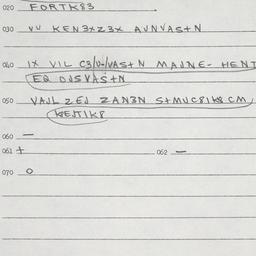 020 FORTK83
030 VU KEN3XZ3X AUNVAS+N
040 IX VIL C3/U-/VAS+N MAJNE- HENI
EQ OJSVAS+N
050 VAJL ZEJ ZAN3N S+MUC81K8 CM,
KEJTIK8
060 —
061 + 062 —
070 O